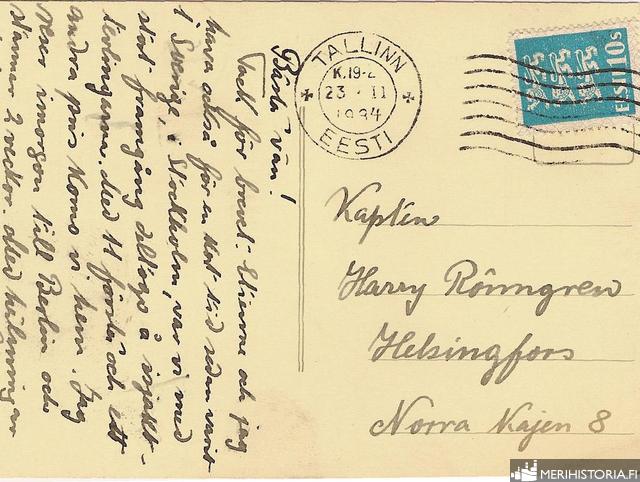 Bästa vän!
Tack för brevet. Etienne och jag
hava också för en kort tid sedan varit
i Sverige, i Stockholm, var vi med
stor framgång deltogo i
tävlingarna. Med 11 första och ett
andra pris komo vi hem. Jag
reser imorgon till Berlin och
stannar 2 veckor. Med hälsningar
TALLINN
K.19-2
23 · II
1934
EESTI
EESTI 10s
Kapten
Harry Rönngren
Helsingfors
Norra Kajen 8
MERIHISTORIA.FI